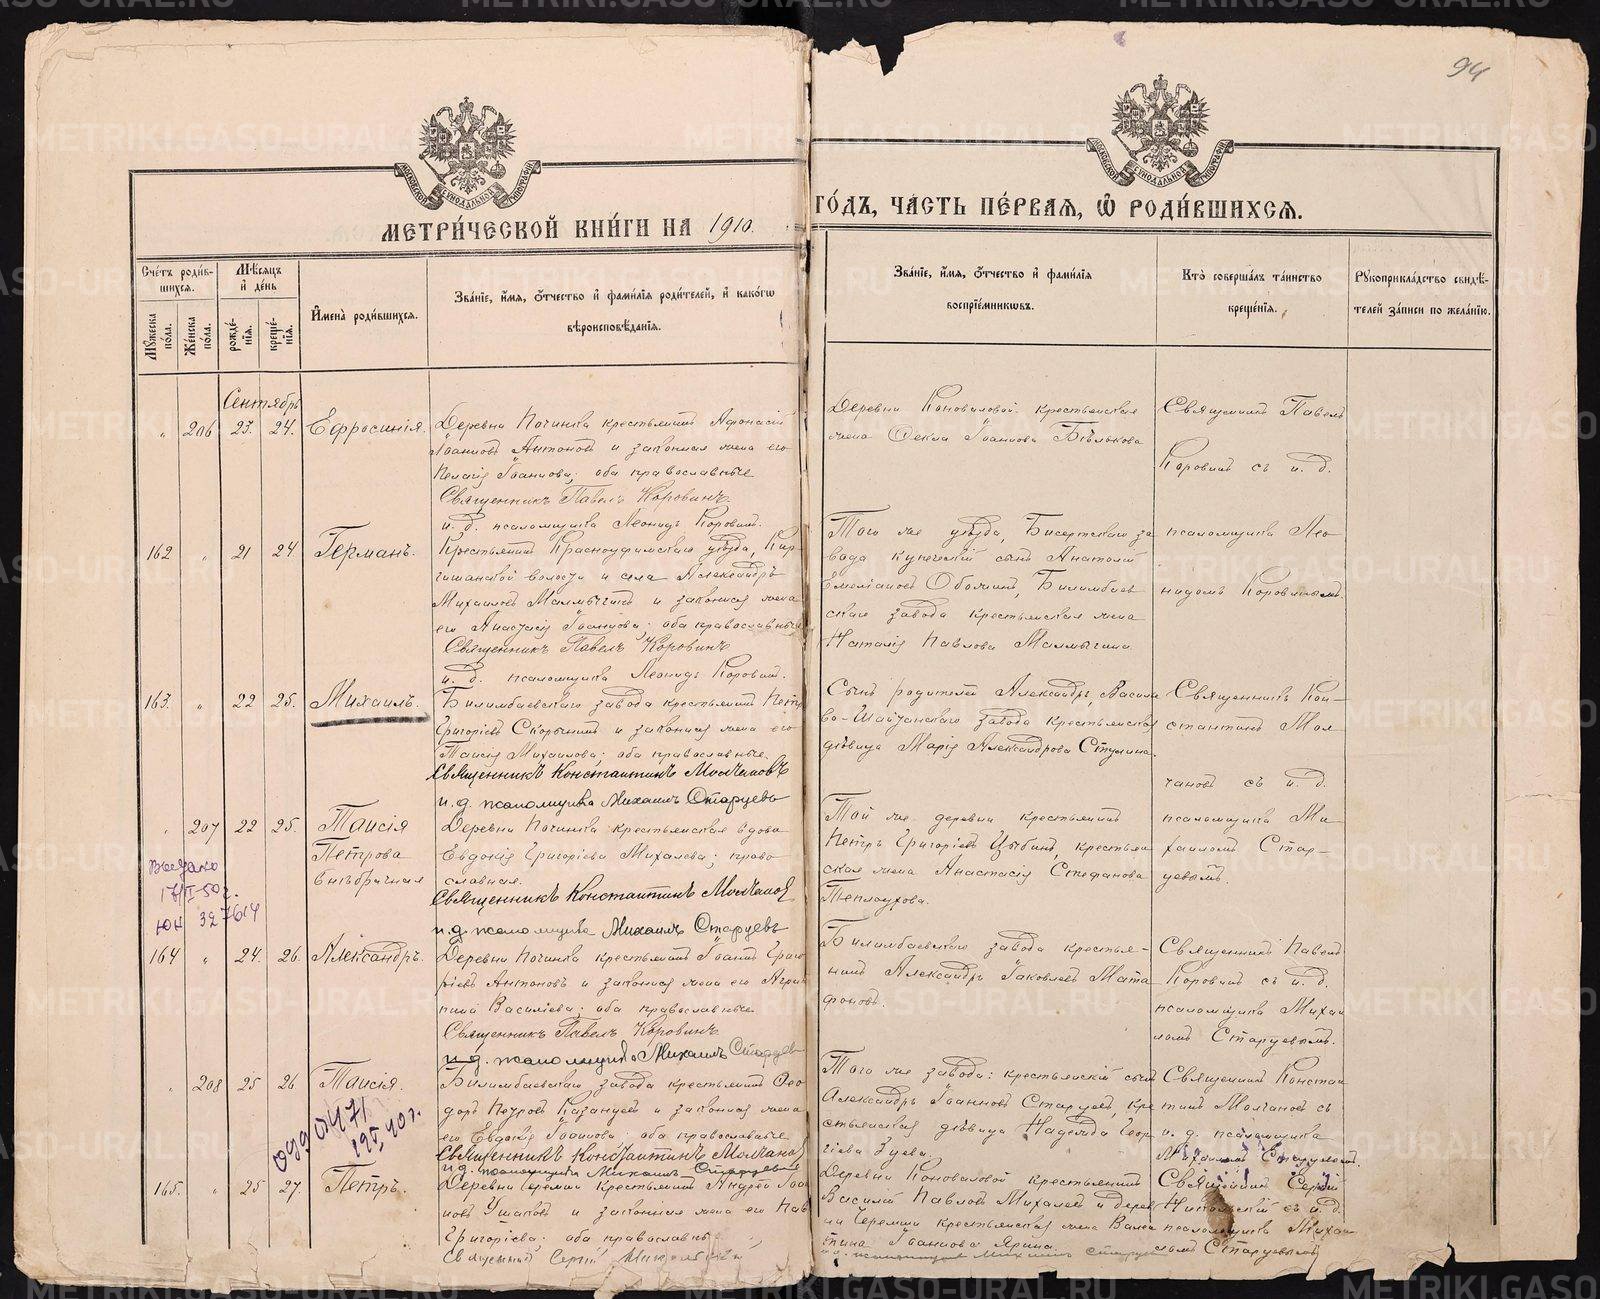 94
МОСКОВСКОЙ СѴНОДАЛЬНОЙ ТИПОГРАФІИ
МОСКОВСКОЙ СѴНОДАЛЬНОЙ ТИПОГРАФІИ
МЕТРИ́ЧЕСКОЙ КНИ́ГИ НА 1910.
ГО́ДЪ, ЧА́СТЬ ПЕ́РВАЯ, Ѡ҆ РОДИ́ВШИХСЯ.
Сче́тъ роди́в-
шихся.
Мѣ́сяцъ
и҆ де́нь
Мꙋ́жеска по́ла.
Же́нска по́ла.
рожде́-нїя.
креще́-нїя.
И҆мена̀ роди́вшихся.
Зва́нїе, и҆́мя, ѻ҆́тчество и҆ фами́лїя роди́телей, и҆ како́гѡ
вѣроисповѣ́данїя.
Зва́нїе, и҆́мя, ѻ҆́тчество и҆ фами́лїя
воспрїе́мникѡвъ.
Кто̀ соверша́лъ та́инство
креще́нїя.
Рꙋкоприкла́дство свидѣ́-
телей за́писи по жела́нїю.
Сентябрь
" 206 23. 24. Ефросинія.
Деревни Починка крестьянинъ Афонасій
Іоанновъ Антоновъ и законная жена его
Пелагія Іоаннова; оба православные
Священникъ Павелъ Коровинъ
и. д. псаломщика Леонидъ Коровинъ.
Деревни Коноваловой крестьянская
жена Фекла Іоаннова Бѣлькова
Священникъ Павелъ
Коровинъ съ и. д.
162 " 21 24 Германъ.
Крестьянинъ Красноуфимскаго уѣзда, Кир-
гишанской волости и села Александръ
Михаиловъ Малмыгинъ и законная жена
его Анастасія Іоаннова; оба православные
Священникъ Павелъ Коровинъ
и. д. псаломщика Леонидъ Коровинъ.
Того же уѣзда, Бисертскаго за
вода купеческій сынъ Анатолій
Емеліановъ Обожинъ, Билимбаев
скаго завода крестьянская жена
Наталія Павлова Малмыгина.
псаломщика Лео
нидомъ Коровинымъ.
163. " 22 25. Михаилъ.
Билимбаевскаго завода крестьянинъ Петръ
Григоріевъ Скорынинъ и законная жена его
Таисія Михаилова; оба православные.
Священникъ Константинъ Молчановъ
и. д. псаломщика Михаилъ Старцевъ
Сынъ родителей Александръ, Васил
во-Шайтанскаго завода крестьянская
дѣвица Марія Александрова Ступина.
Священникъ Кон-
стантинъ Мол
чановъ съ и. д.
" 207 22 25. Таисія
Петрова
внѣбрачная
Деревни Починка крестьянская вдова
Евдокія Григоріева Михалева; право
славная.
Священникъ Константинъ Молчановъ
и. д. псаломщика Михаилъ Старцевъ
Той же деревни крестьянинъ
Петръ Григоріевъ Цыбинъ, крестьян
ская жена Анастасія Стефанова
Теплоухова.
псаломщика Ми
хаиломъ Стар-
цевымъ.
Выдано
17/I-50 г.
ЮН 327614
164 " 24. 26. Александръ.
Деревни Починка крестьянинъ Іоаннъ Григо
ріевъ Антоновъ и законная жена его Агрип
пина Василіева; оба православные
Священникъ Павелъ Коровинъ
и. д. псаломщика Михаилъ Старцевъ
Билимбаевскаго завода крестья-
нинъ Александръ Іаковлевъ Мата
фоновъ.
Священникъ Павелъ
Коровинъ съ и. д.
псаломщика Михаи
ломъ Старцевымъ.
" 208 25 26 Таисія.
Билимбаевскаго завода крестьянинъ Фео
доръ Петровъ Казанцевъ и законная жена
его Евдокія Іоаннова; оба православные
Священникъ Константинъ Молчановъ
и. д. псаломщика Михаилъ Старцевъ
Того же завода: крестьянскій сынъ
Александръ Іоанновъ Старцевъ, кре
стьянская дѣвица Надежда Геор
гіева Зуева.
Священникъ Констан
тинъ Молчановъ съ
и. д. псаломщика
Михаиломъ Старцевымъ.
165. " 25 27. Петръ.
Деревни Черемши крестьянинъ Андрей Іоан
новъ Ушаковъ и законная жена его Пав
Григоріева; оба православные
Священникъ Сергій Никольскій
Деревни Коноваловой крестьянинъ
Василій Павловъ Михалевъ и дерев
ни Черемши крестьянская жена Вален
тина Іоаннова Ярина.
и. д. псаломщика Михаилъ Старцевъ
Священникъ Сергій
Никольскій съ и. д.
псаломщика Михаи
ломъ Старцевымъ
METRIKI.GASO-URAL.RU